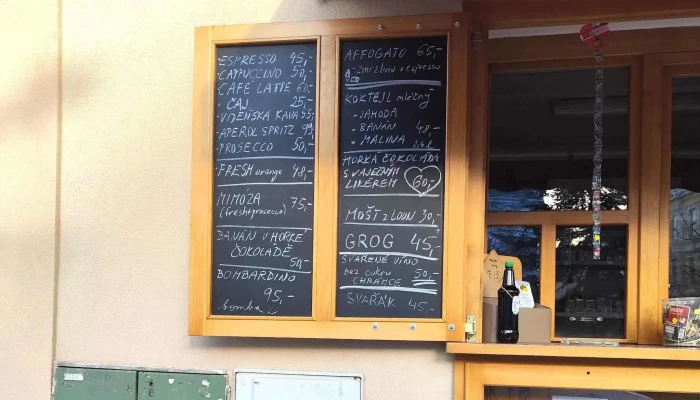 ESPRESSO 45,-
CAPPUCCINO 50,-
CAFÉ LATTE 60,-
· ČAJ 25,-
· VIDENSKÁ KÁVA 55,-
· APEROL SPRITZ 99,-
· PROSECCO 50,-
· FRESH orange 48,-
MIMÓZA 75,-
(fresh+prosecco)
BANÁN V HORKÉ
ČOKOLÁDĚ
50,-
BOMBARDINO
95,-
bomba
AFFOGATO 65,-
zmrzlina v espressu
KOKTEJL mléčný
- JAHODA
- BANÁN 48,-
- MALINA
HORKÁ ČOKOLÁDA
S VAJEČNÝM
LIKÉREM 60,-
MOŠT z LOUN 30,-
GROG 45,-
SVAŘENÉ VÍNO
bez cukru 50,-
CHRÁMCE
SVAŘÁK 45,-